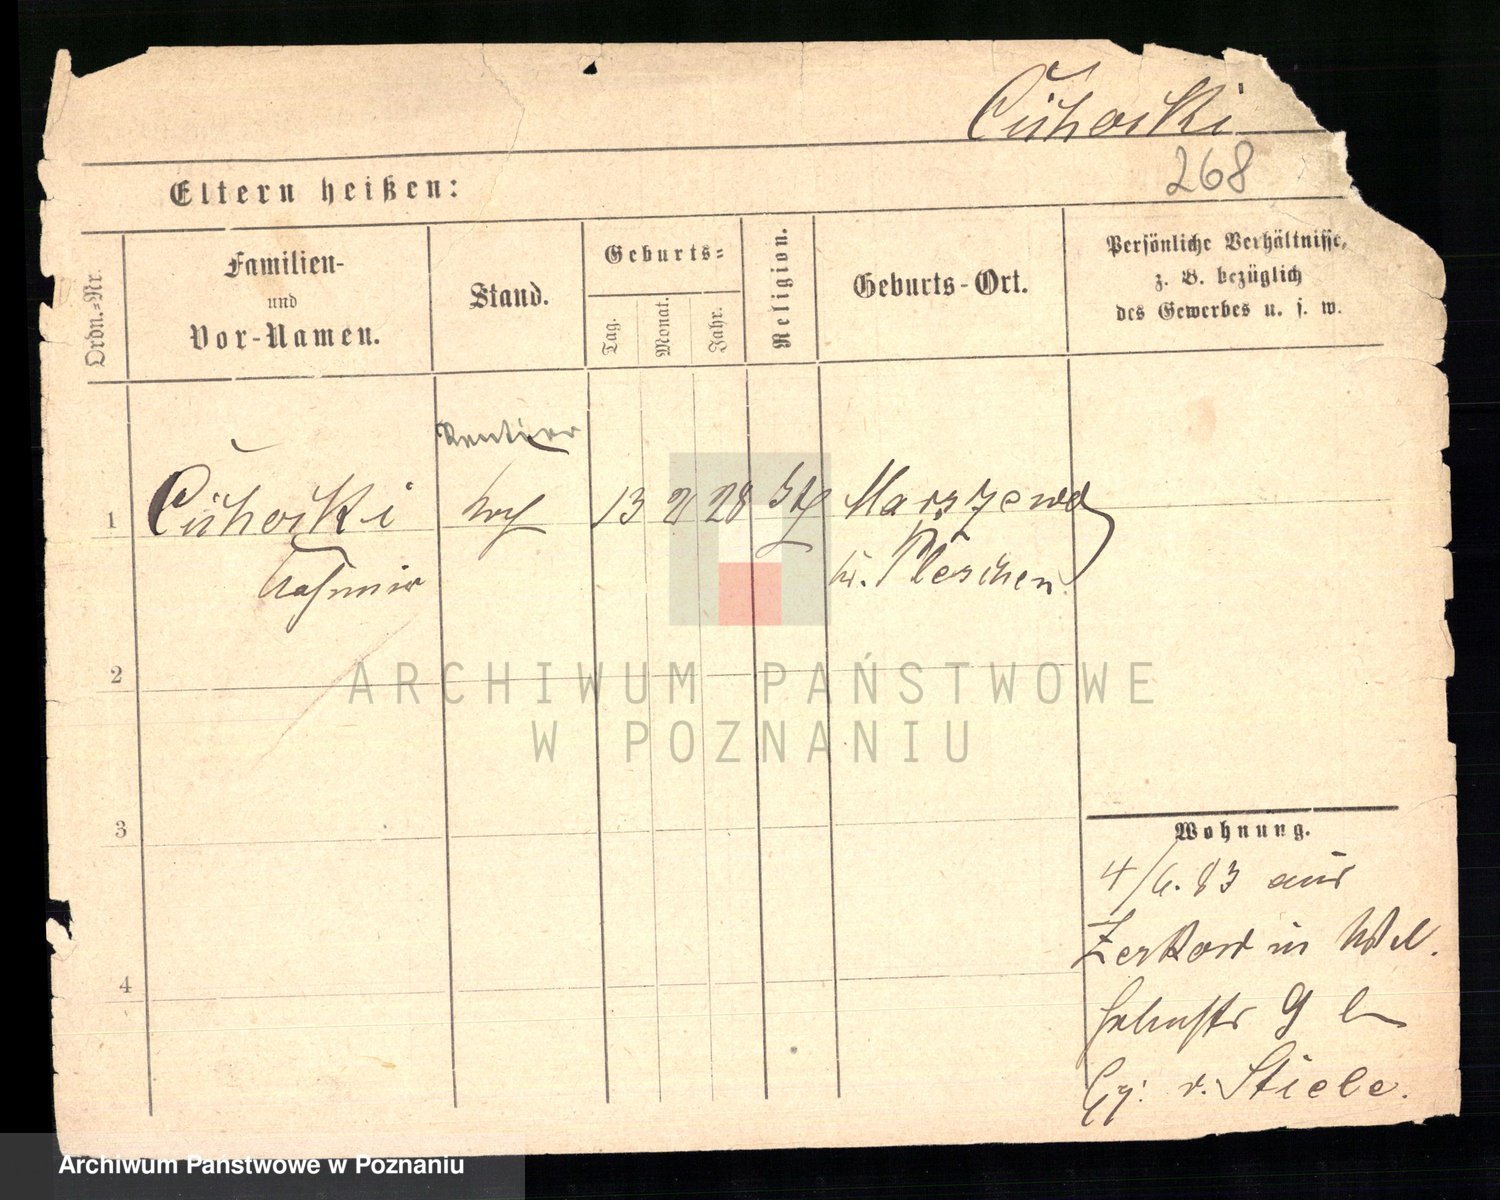 Cuhocki
268
Eltern heißen:
Ordn.-Nr.
Familien-
und
Vor-Namen.
Stand.
Geburts-
Tag.
Monat.
Jahr.
Religion.
Geburts-Ort.
Persönliche Verhältnisse,
z. B. bezüglich
des Gewerbes u. s. w.
Rentier
1 Cuhocki 13 2 28 kth Marszewo
Casimir Kr. Pleschen
2
3
4
Wohnung.
4/6. 83 aus
Zerkow in
9
v. Stiebe.
ARCHIWUM PAŃSTWOWE
W POZNANIU
Archiwum Państwowe w Poznaniu